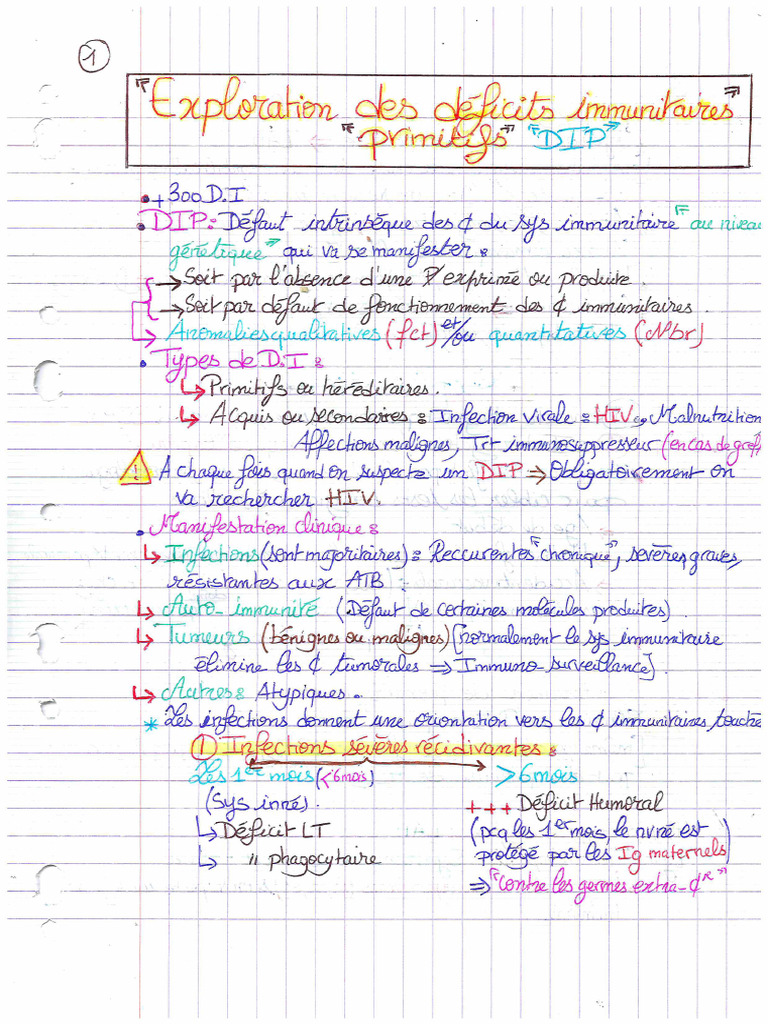 1
"Exploration des déficits immunitaires"
"primitifs" "DIP"
• +300 D.I
• DIP: Défaut intrinséque des ¢ du sys immunitaire "au niveau
génétique" qui va se manifester :
→ Soit par l'absence d'une P/ exprimée ou produite.
→ Soit par défaut de fonctionnement des ¢ immunitaires.
↳ Anomalies qualitatives (fct) et/ou quantitatives (Nbr)
• Types de D.I :
↳ Primitifs ou héréditaires.
↳ Acquis ou secondaires : Infection virale : HIV, Malnutrition
Affections malignes, Trt immunosuppresseur (en cas de gref
⚠ A chaque fois quand on suspecte un DIP ⇒ Obligatoirement on
va rechercher HIV.
• Manifestation clinique :
↳ Infections (sont majoritaires) : Reccurentes "chronique", sevères, graves,
résistantes aux ATB.
↳ Auto-immunité (Défaut de certaines molécules produites)
↳ Tumeurs (bénignes ou malignes) [normalement le sys immunitaire
élimine les ¢ tumorales ⇒ Immuno-surveillance].
↳ Autres : Atypiques.
* Les infections donnent une orientation vers les ¢ immunitaires touché
① Infections sévères récidivantes :
Les 1er mois (<6mois) >6mois
(Sys inné). +++ Déficit Humoral
↳ Déficit LT (pcq les 1er mois, le nvné est
↳ " phagocytaire protégé par les Ig maternels)
⇒ "contre les germes extra-¢re"